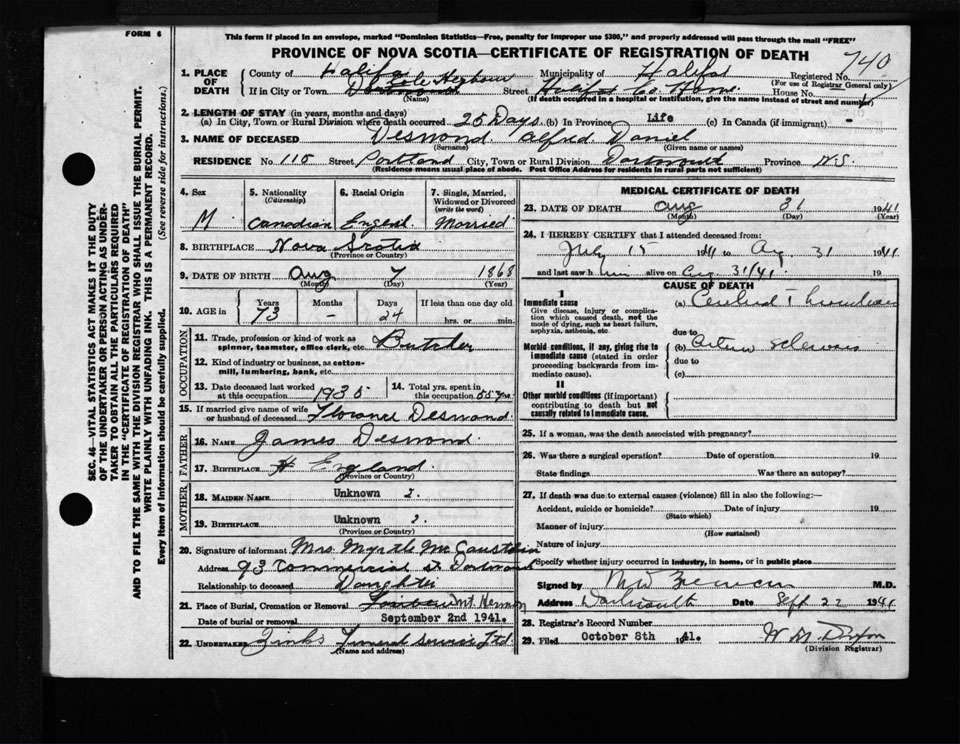 FORM 6
This form if placed in an envelope, marked "Dominion Statistics—Free, penalty for improper use $300," and properly addressed will pass through the mail "FREE"
PROVINCE OF NOVA SCOTIA—CERTIFICATE OF REGISTRATION OF DEATH
740
1. PLACE OF DEATH County of Halifax Municipality of Halifax Registered No.
(For use of Registrar General only)
Cole Harbour
If in City or Town Dartmouth Street Halifax Co. Home House No.
(Name) (If death occurred in a hospital or institution, give the name instead of street and number)
2. LENGTH OF STAY (in years, months and days)
(a) In City, Town or Rural Division where death occurred 25 Days (b) In Province Life (c) In Canada (if immigrant) -
3. NAME OF DECEASED Desmond. Alfred. Daniel
(Surname) (Given name or names)
RESIDENCE No. 115 Street Portland City, Town or Rural Division Dartmouth Province N.S.
(Residence means usual place of abode. Post Office Address for residents in rural parts not sufficient)
4. Sex 5. Nationality 6. Racial Origin 7. Single, Married, Widowed or Divorced
(Citizenship) (write the word)
M. Canadian English Married
8. BIRTHPLACE Nova Scotia
(Province or Country)
9. DATE OF BIRTH Aug 7 1868
(Month) (Day) (Year)
10. AGE in Years Months Days If less than one day old
73 - 24 hrs. or min.
OCCUPATION
11. Trade, profession or kind of work as spinner, teamster, office clerk, etc. Butcher
12. Kind of industry or business, as cotton-mill, lumbering, bank, etc.
13. Date deceased last worked at this occupation 1935 14. Total yrs. spent in this occupation 55 yrs.
15. If married give name of wife or husband of deceased Florance Desmond.
FATHER
16. NAME James Desmond.
17. BIRTHPLACE England.
(Province or Country)
MOTHER
18. MAIDEN NAME Unknown ?.
19. BIRTHPLACE Unknown ?.
(Province or Country)
20. Signature of informant Mrs Myrtle
Address 93 Commercial St Dartmouth
Relationship to deceased Daughter
21. Place of Burial, Cremation or Removal Mt Hermon
Date of burial or removal September 2nd 1941.
22. UNDERTAKER Zinks Funeral Service Ltd.
(Name and address)
MEDICAL CERTIFICATE OF DEATH
23. DATE OF DEATH Aug 31 1941
(Month) (Day) (Year)
24. I HEREBY CERTIFY that I attended deceased from:
July 15 1941 to Aug. 31 1941
and last saw him alive on Aug. 31/41. 19
CAUSE OF DEATH
I
Immediate cause (a) Cerebral Thrombosis
Give disease, injury or complication which caused death, not the mode of dying, such as heart failure, asphyxia, asthenia, etc.
due to
Morbid conditions, if any, giving rise to immediate cause (stated in order proceeding backwards from immediate cause). (b) Arterio Sclerosis
due to
(c)
II
Other morbid conditions (if important) contributing to death but not causally related to immediate cause.
25. If a woman, was the death associated with pregnancy?
26. Was there a surgical operation? Date of operation 19
State findings Was there an autopsy?
27. If death was due to external causes (violence) fill in also the following:—
Accident, suicide or homicide? Date of injury 19
(State which)
Manner of injury
(How sustained)
Nature of injury
Specify whether injury occurred in industry, in home, or in public place
Signed by M.D.
Address Dartmouth Date Sept 22 1941
28. Registrar's Record Number
29. Filed October 8th 1941. W M Dixon
(Division Registrar)
SEC. 46—VITAL STATISTICS ACT MAKES IT THE DUTY
OF THE UNDERTAKER OR PERSON ACTING AS UNDER-
TAKER TO OBTAIN ALL THE PARTICULARS REQUIRED
IN THE "CERTIFICATE OF REGISTRATION OF DEATH"
AND TO FILE THE SAME WITH THE DIVISION REGISTRAR WHO SHALL ISSUE THE BURIAL PERMIT.
WRITE PLAINLY WITH UNFADING INK. THIS IS A PERMANENT RECORD.
Every item of Information should be carefully supplied. (See reverse side for instructions.)